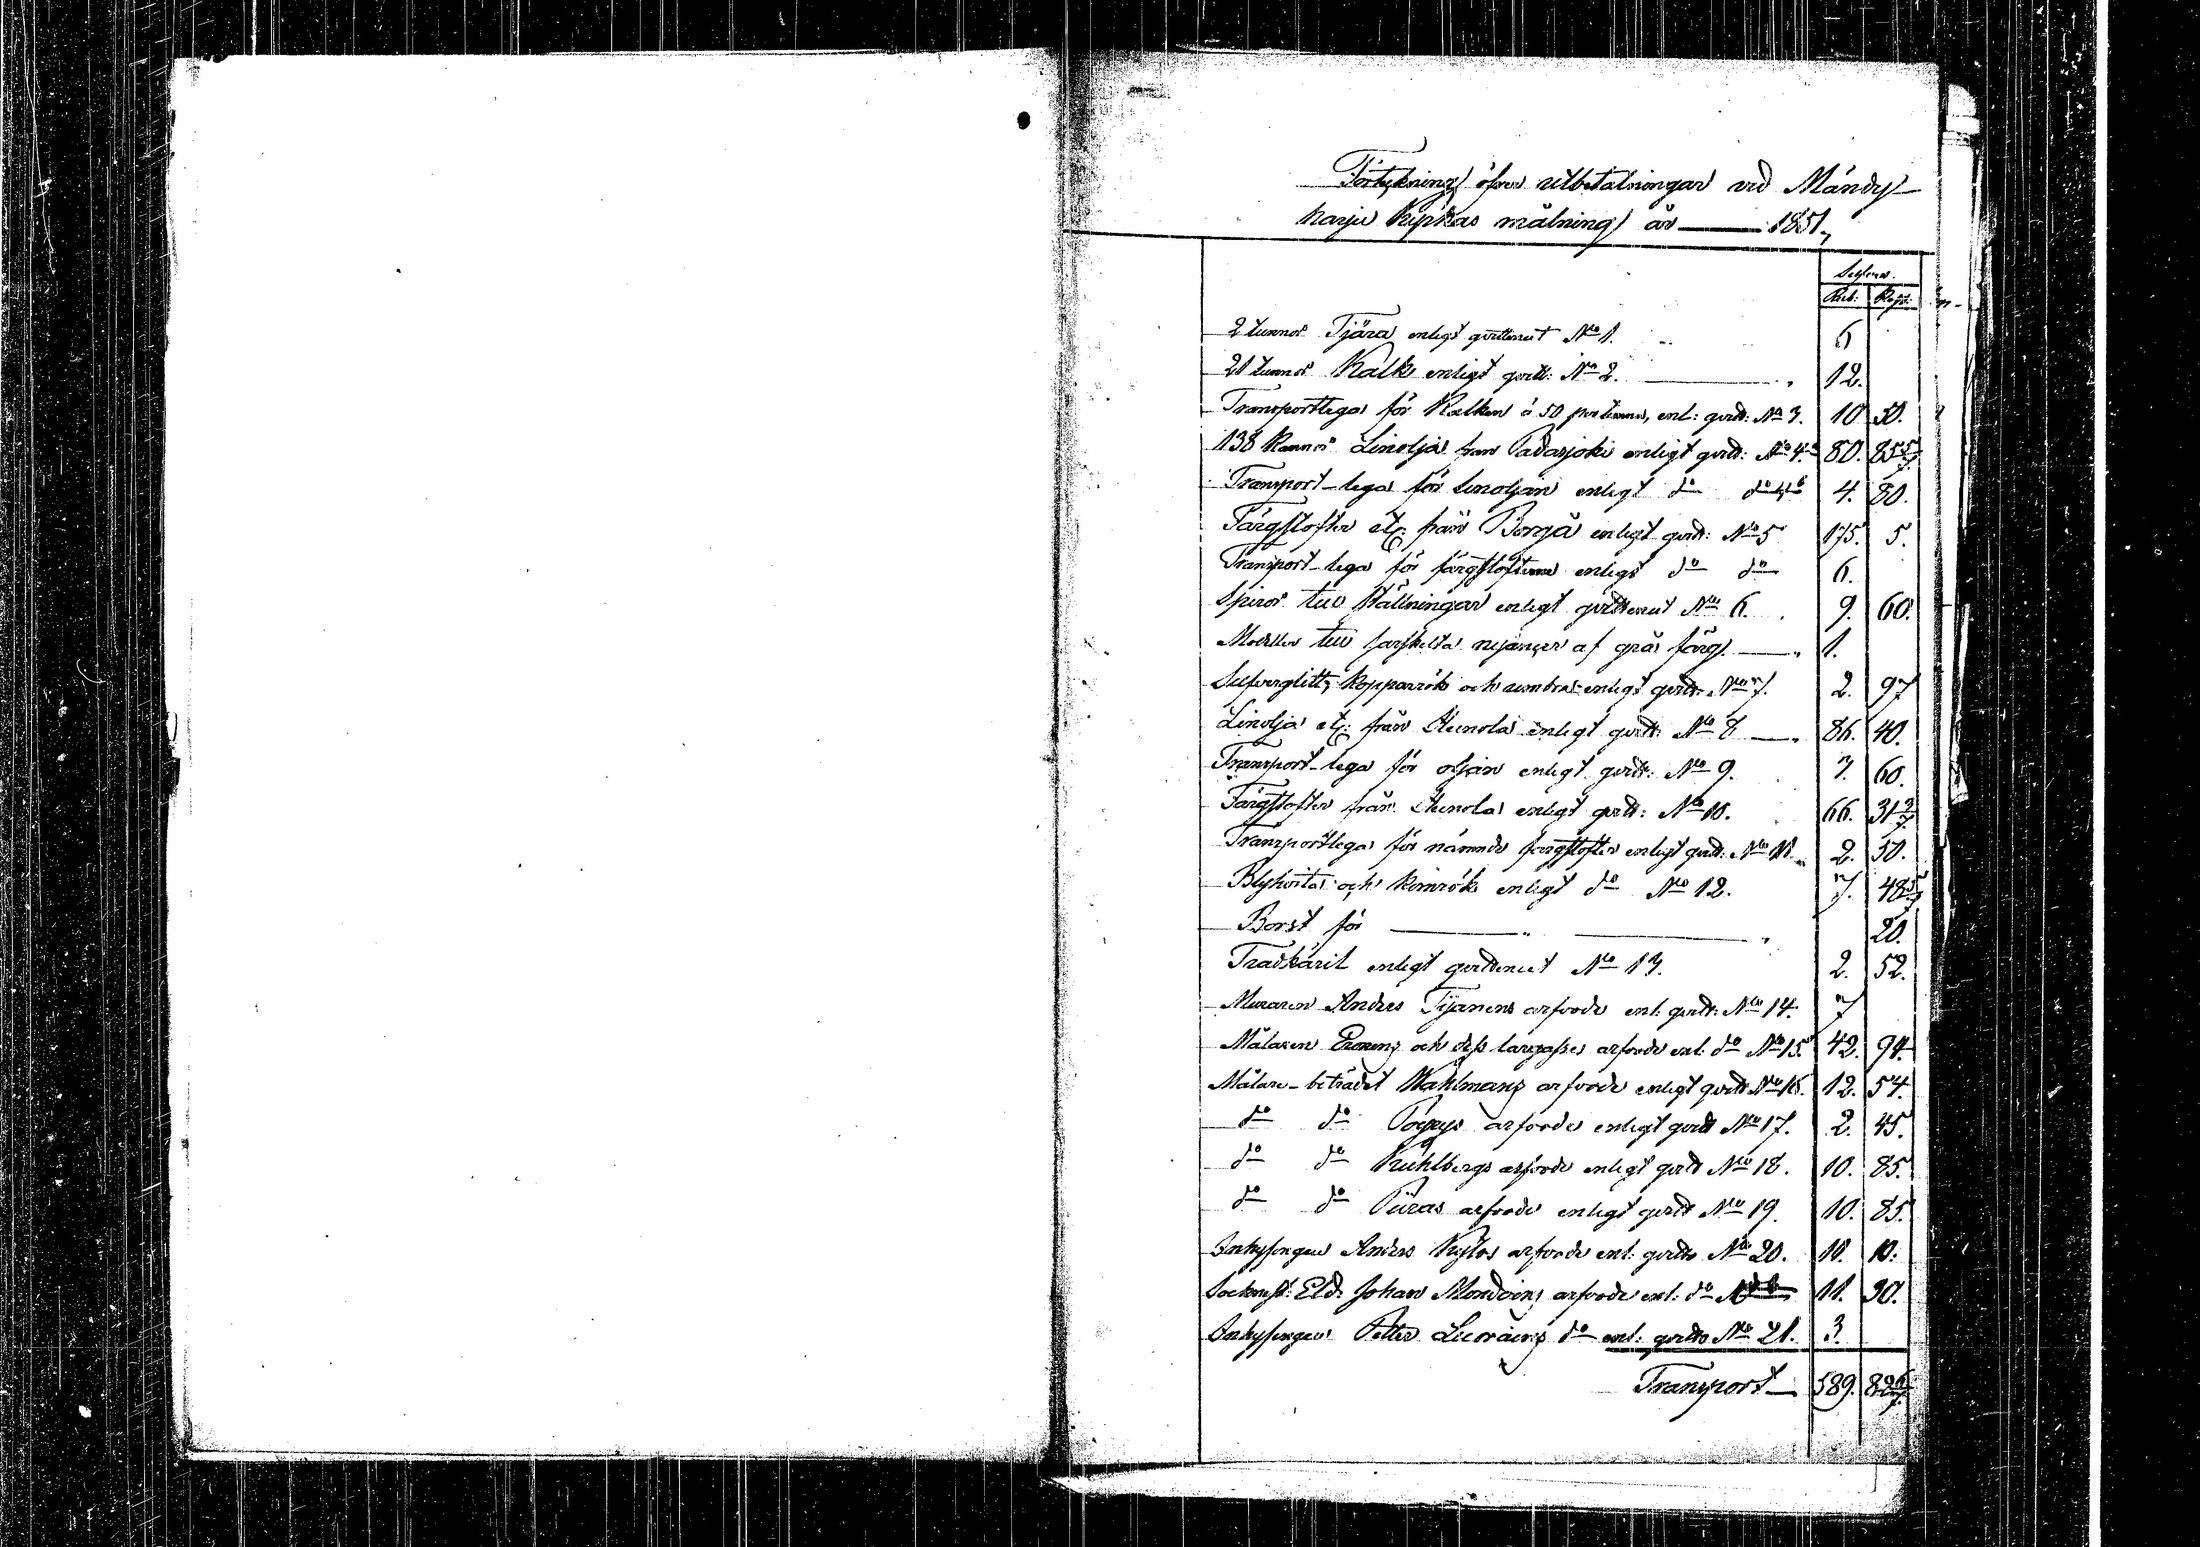 Förtekning öfver utbetalningar vid Mändy-
harju Kyrkas målning år 1851.
Silfver.
Rub: Kop:
2 tunnor Tjära enligt qvittence No 1. 6
21 tunnor Kalk enligt qvitt: No 2. 12.
Transportlega för Kalken á 50 per tunna, enl: qvitt: No 3. 10 50.
138 Kannor Linolja från Padasjoki enligt qvitt: No 4.a 80. 85 5/7
Transport-lega för Linoljan enligt do do 4 b 4. 80.
Färgstofter etc: från Borgå enligt qvitt: No 5 175. 5.
Transport-lega för färgstofterna enligt do do 6.
Spiror till ställningar enligt qvittence No 6. 9. 60.
Modeller till särskilda nyancer af grå färg. 1.
Silfverglitt, Kopparrök och umbra enligt qvitt: No 7. 2. 97
Linolja etc: från Heinola enligt qvitt: No 8 86. 40.
Transport-lega för oljan enligt qvitt: No 9. 7. 60.
Färgstofter från Heinola enligt qvitt: No 10. 66. 31 3/7
Transportlega för nämnde färgstofter enligt qvitt: No 11. 2. 50.
Blyhvita och Kimrök enligt do No 12. 7. 48 5/7
Borst för 20.
Trådkäril enligt qvittence No 13. 2. 52.
Muraren Anders Tijanens arfvode enl. qvitt: No 14. 7
Målaren och dess arfvode enl. do No 15. 42. 94
Målare-biträdet Wahlmans arfvode enligt qvitt No 16. 12. 54.
do do arfvode enligt qvitt No 17. 2. 45.
do do Kuhlbergs arfvode enligt qvitt No 18. 10. 85.
do do Püras arfvode enligt qvitt No 19. 10. 85.
Inhysingen Anders arfvode enl: qvitto No 20. 10. 10.
Sockneskr: Eld. Johan Mondoins arfvode enl: do 11. 30.
Inhysingen Petter Luoräins do enl: qvitto No 21. 3.
Transport 589. 82 6/7